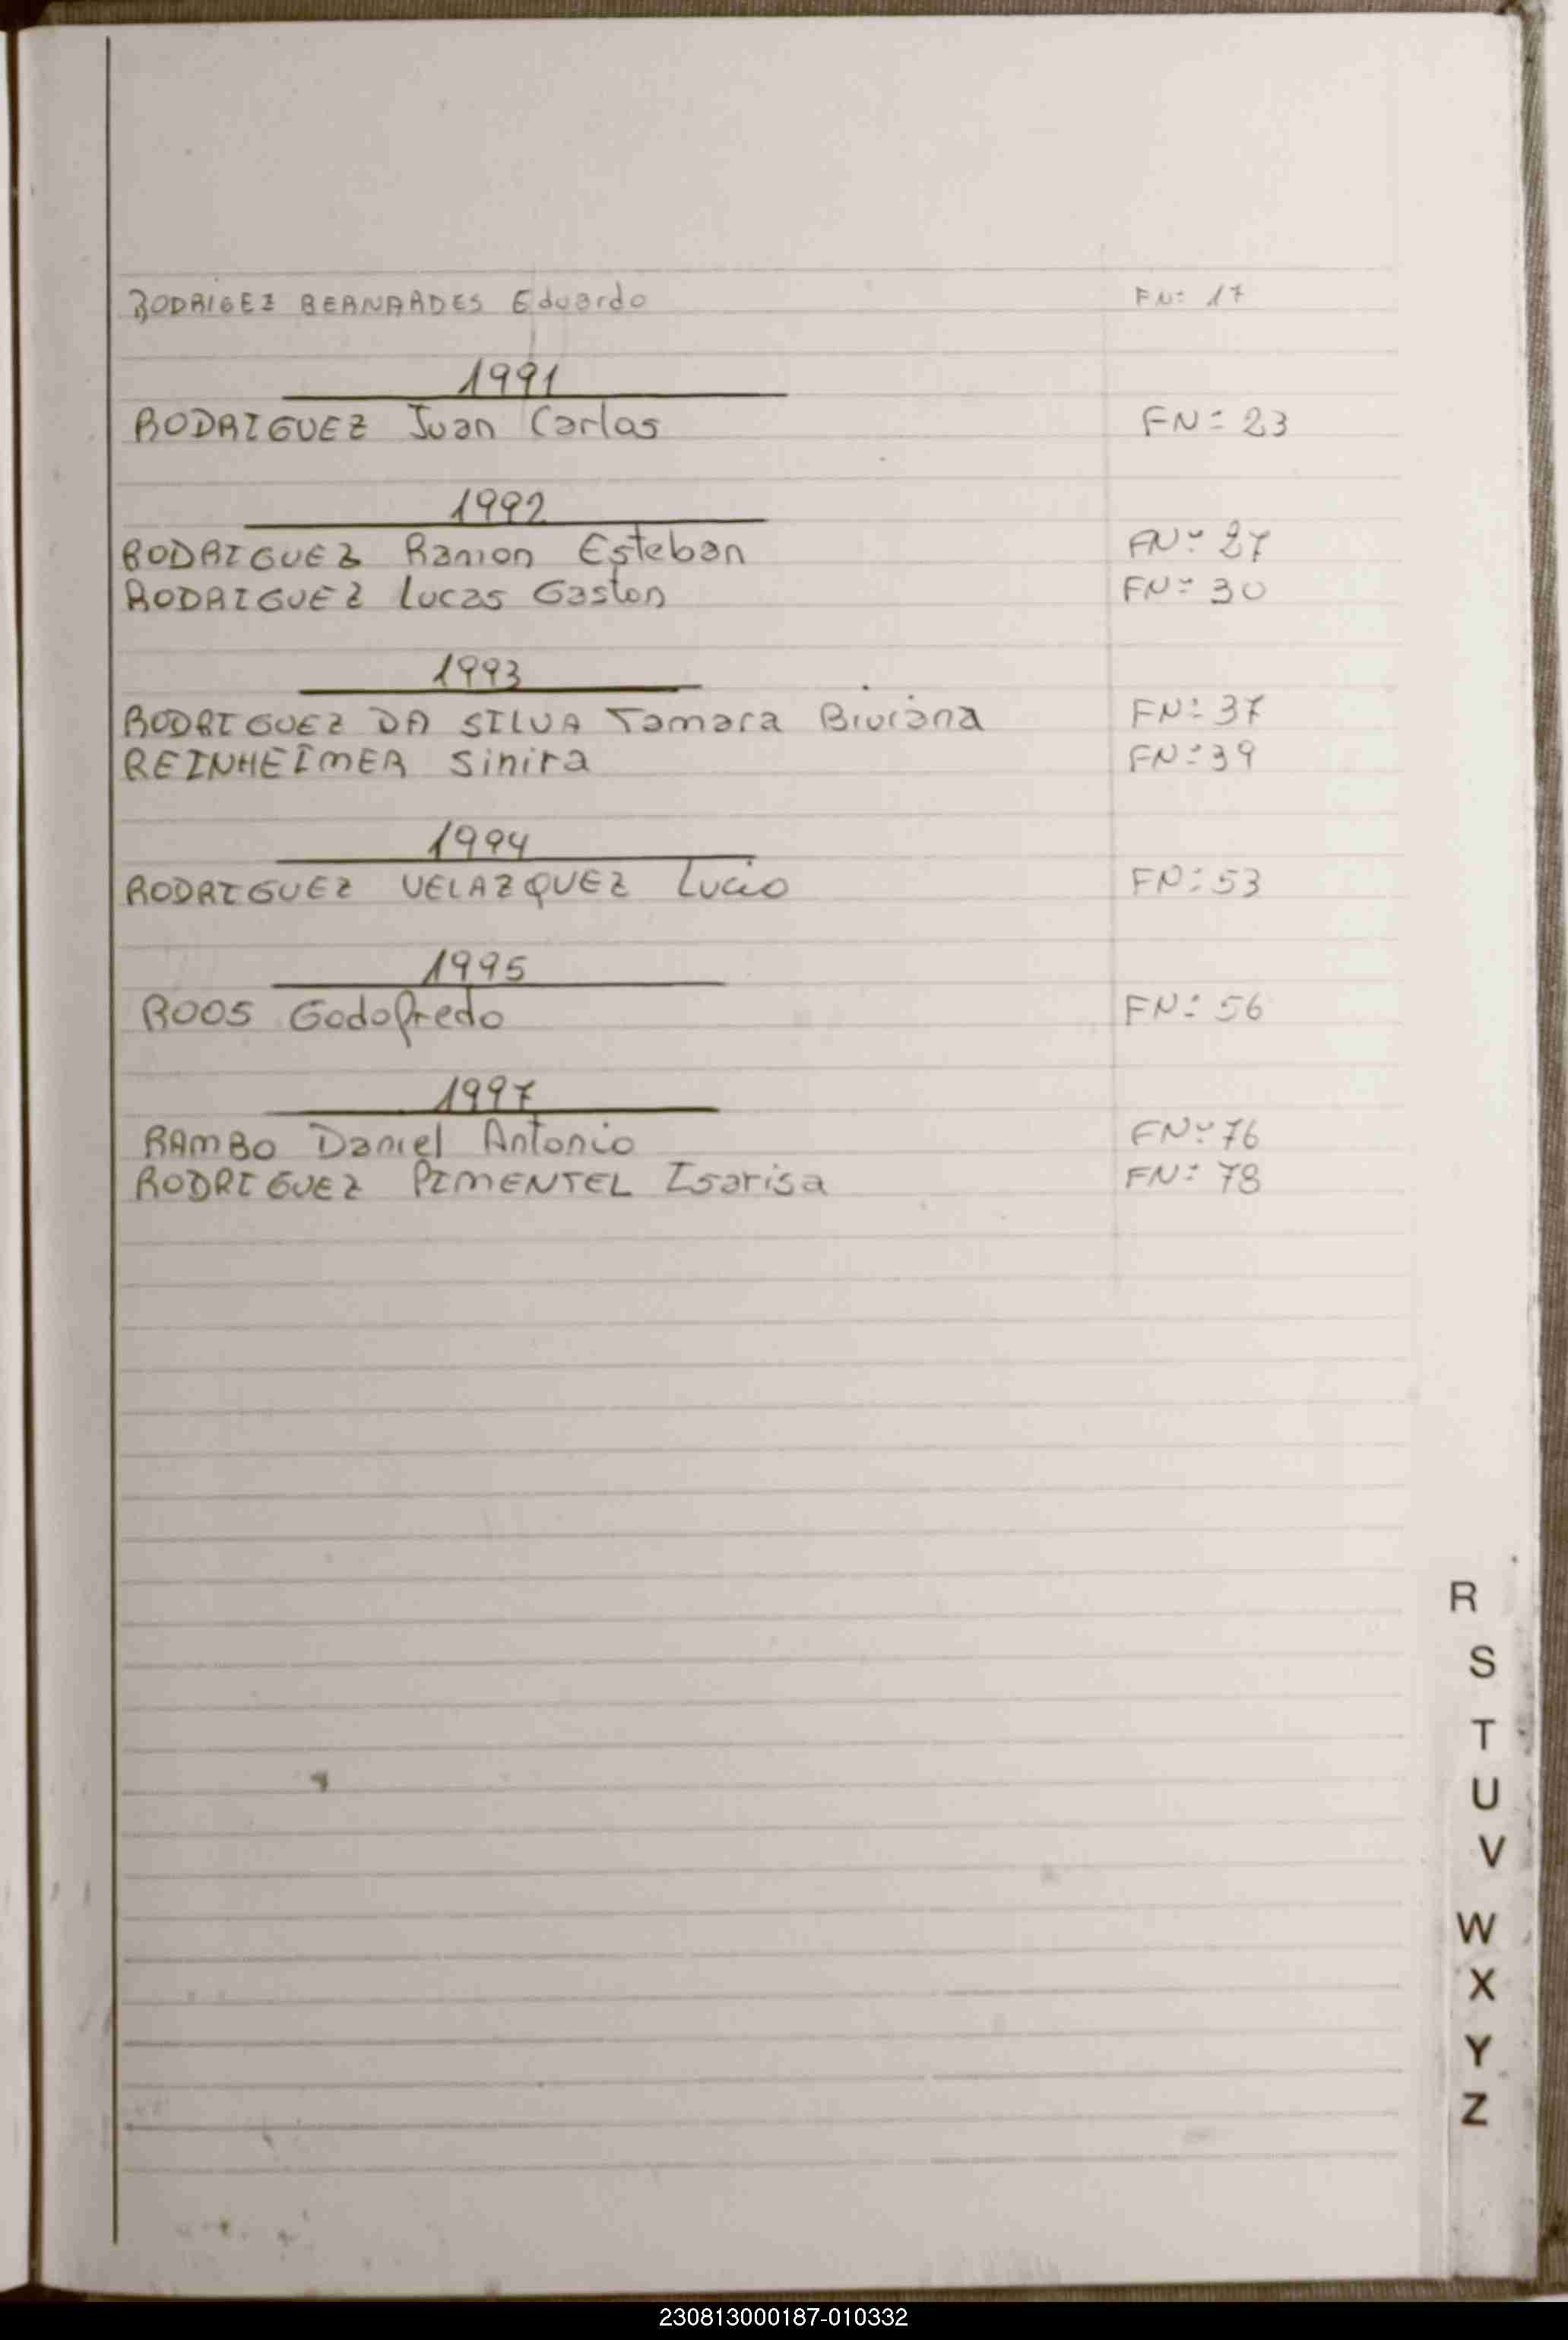 RODRIGEZ BERNARDES Eduardo FNº 17
1991
RODRIGUEZ Juan Carlos FNº 23
1992
RODRIGUEZ Ramon Esteban FNº 27
RODRIGUEZ Lucas Gaston FNº 30
1993
RODRIGUEZ DA SILVA Tamara Biviana FNº 37
REINHEIMER Sinira FNº 39
1994
RODRIGUEZ VELAZQUEZ Lucio FNº 53
1995
ROOS Godofredo FNº 56
1997
RAMBO Daniel Antonio FNº 76
RODRIGUEZ PIMENTEL Isarisa FNº 78
R
S
T
U
V
W
X
Y
Z
230813000187-010332